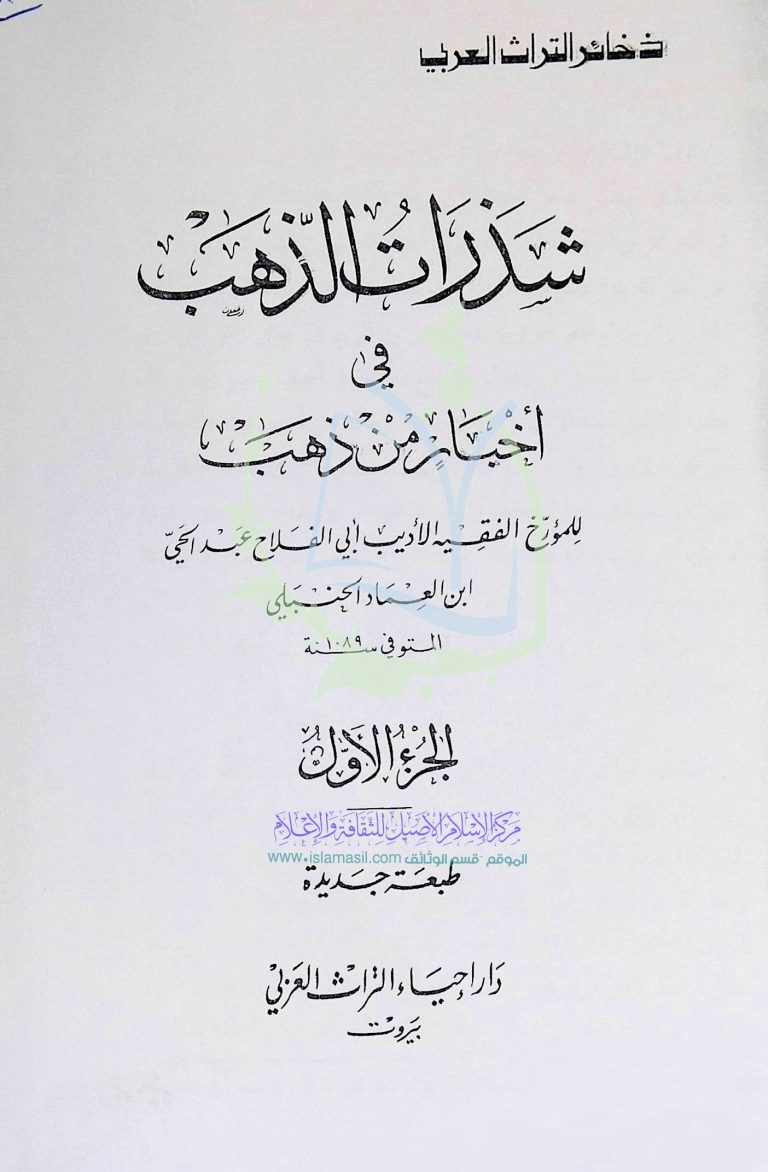 ذخائر التراث العربي
شَذَرَاتُ الذّهَبْ
في
أخْبَارِ مَنْ ذَهَبْ
لِلمؤرّخ الفقيه الأديب أبي الفلاح عَبْد الحَيّ
ابن العِمَاد الحنبَلي
المتوفى سنة ١٠٨٩
الجزء الأوّل
مركز الإسلام الأصيل للثقافة والإعلام
الموقع - قسم الوثائق www.islamasil.com
طبعَة جَديدة
دَار إحيَاء التراث العَرَبي
بَيروت